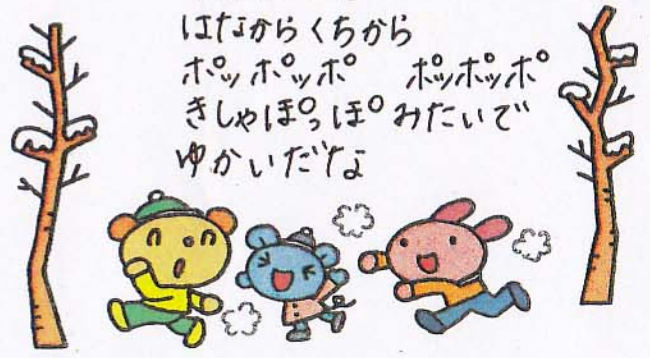 はなからくちから
ポッポッポ　ポッポッポ
きしゃぽっぽみたいで
ゆかいだな